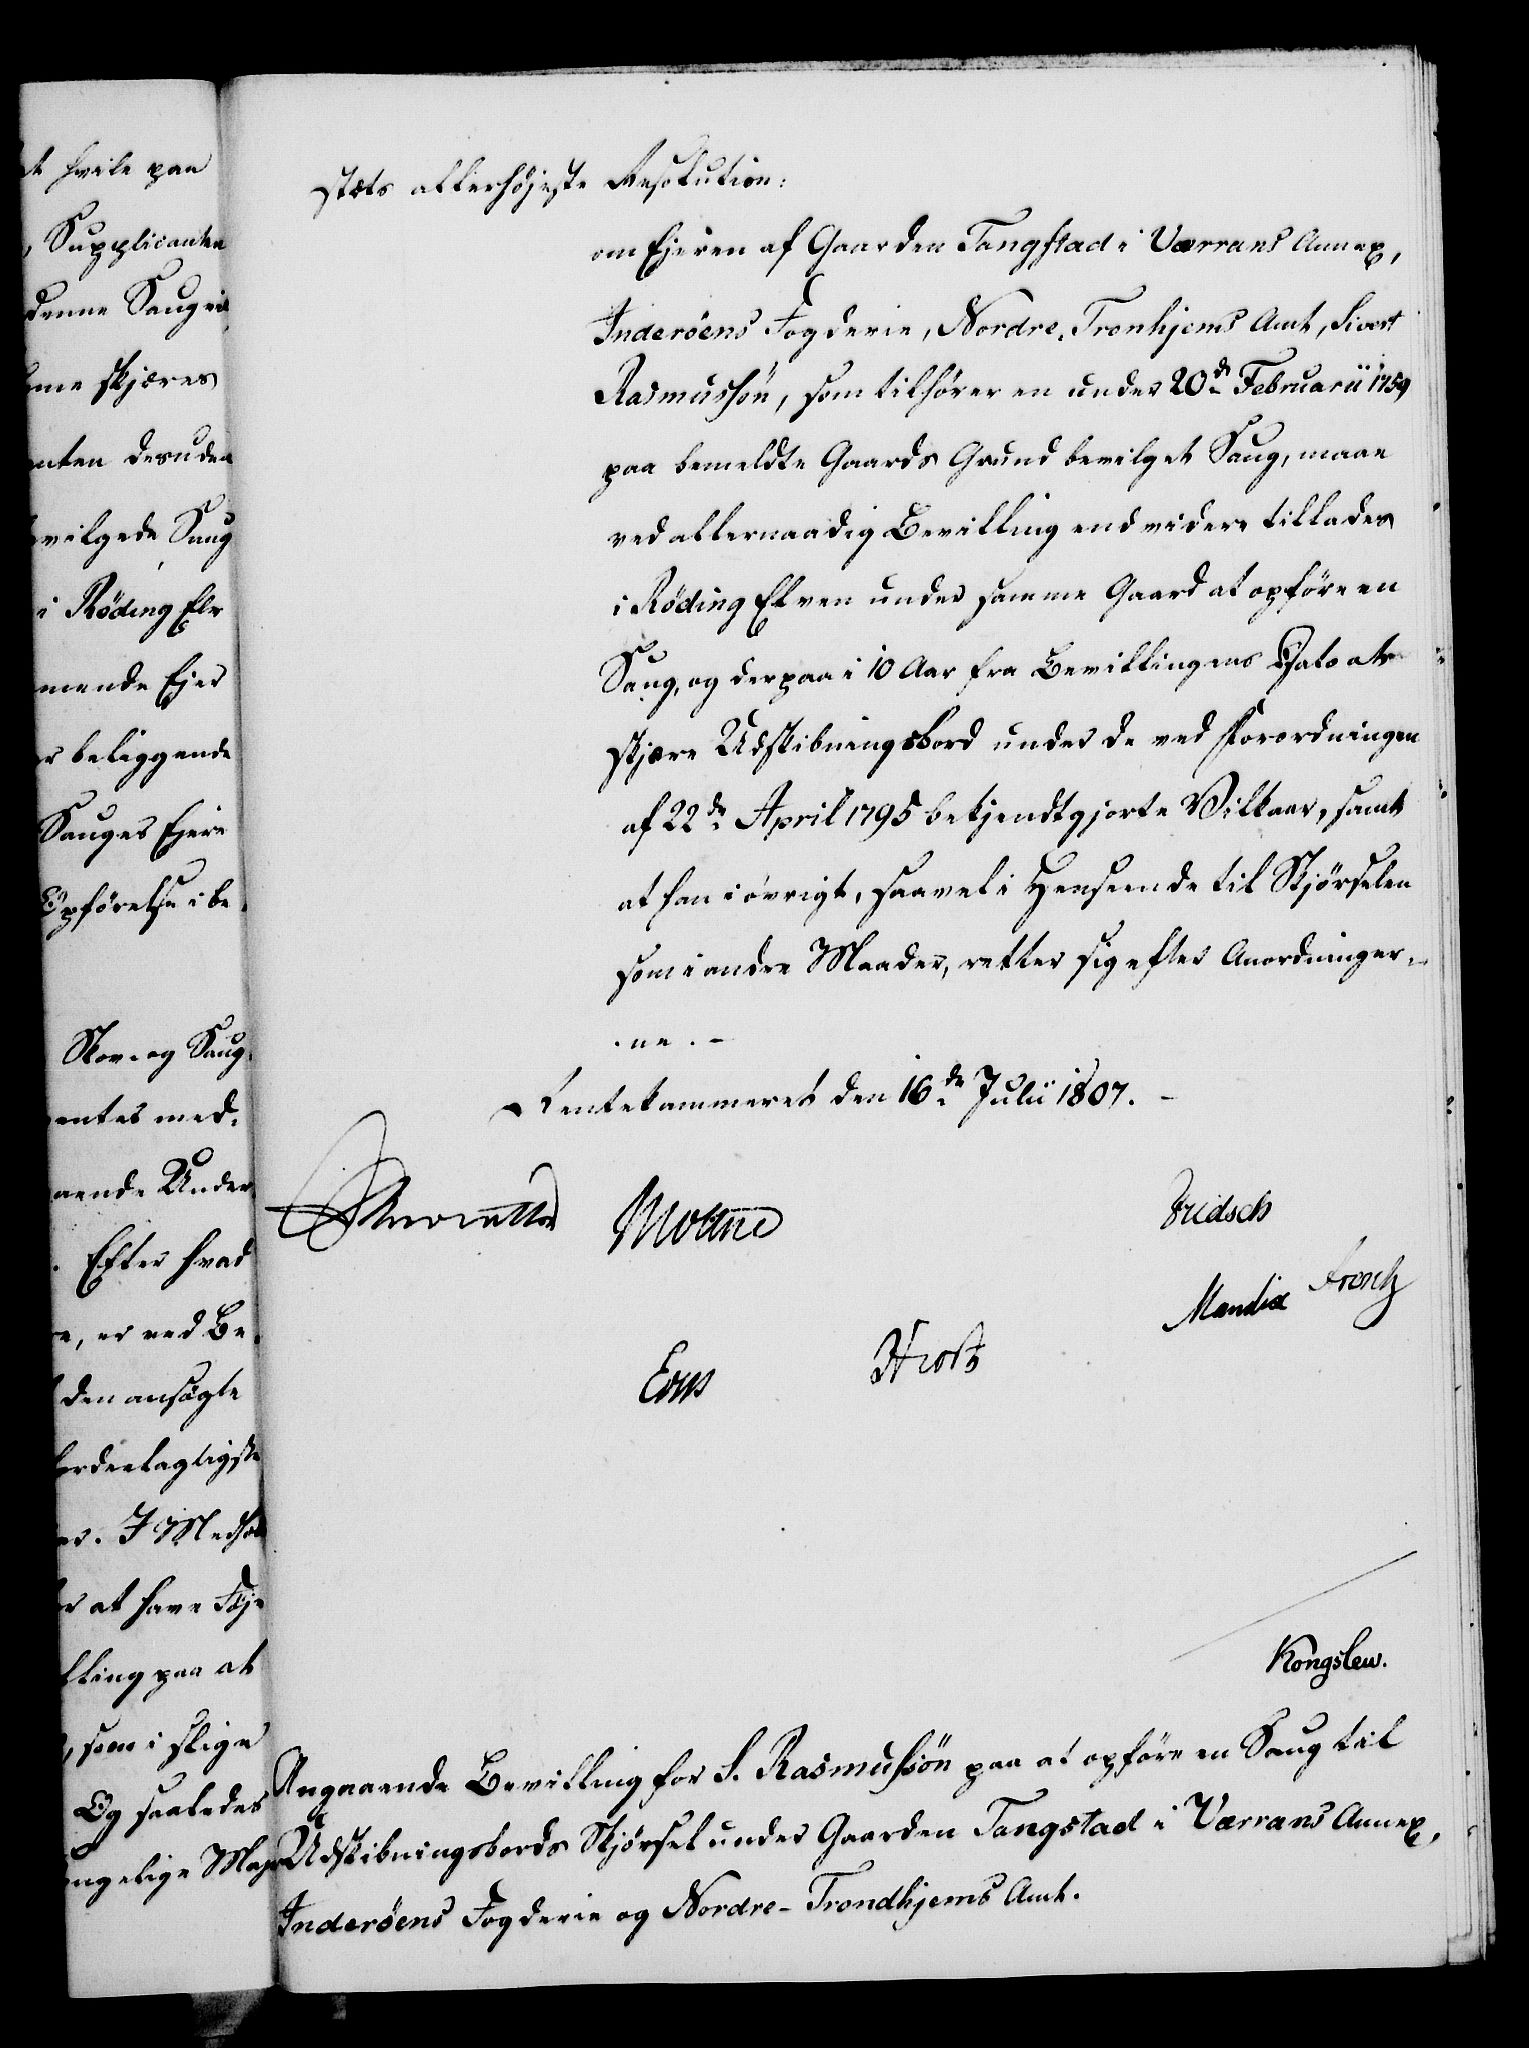 hvile paa
Supplicanten
denne Saug
skjæres
desuden
Saug
i Röding Elv
Ejer
beliggende
Sauges Ejere
Opförelse i be-
Skov- og Saug-
med-
Under
Efter hvad
er ved Be-
den ansøgte
I Medhold
at have Föje
paa at
som i slige
Og saaledes
stæts allerhöjeste Resolution:
om Ejeren af Gaarden Tangstad i Værrans Annex,
Inderöens Fogderie, Nordre-Tronhjems Amt, Sivert
Rasmussön, som tilhörer en under 20de Februarii 1759
paa bemeldte Gaards Grund bevilget Saug, maae
ved allernaadig Bevilling endvidere tillades
i Röding Elven under samme Gaard at opföre en
Saug, og derpaa i 10 Aar fra Bevillingens Dato at
skjære Udskibningsbord under de ved Forordningen
af 22de April 1795 bekjendtgjorte Vilkaar, samt
at han i övrigt, saavel i Henseende til Skjörselen
som i andre Maader, retter sig efter Anordninger-
ne.-
Rentekammeret den 16de Julii 1807.-
Mourier
Mandix
Kongslew.
Angaaende Bevilling for S. Rasmussön paa at opföre en Saug til
Udskibningsbords Skjörsel under Gaarden Tangstad i Værrans Annex,
Inderöens Fogderie og Nordre-Trondhjems Amt.